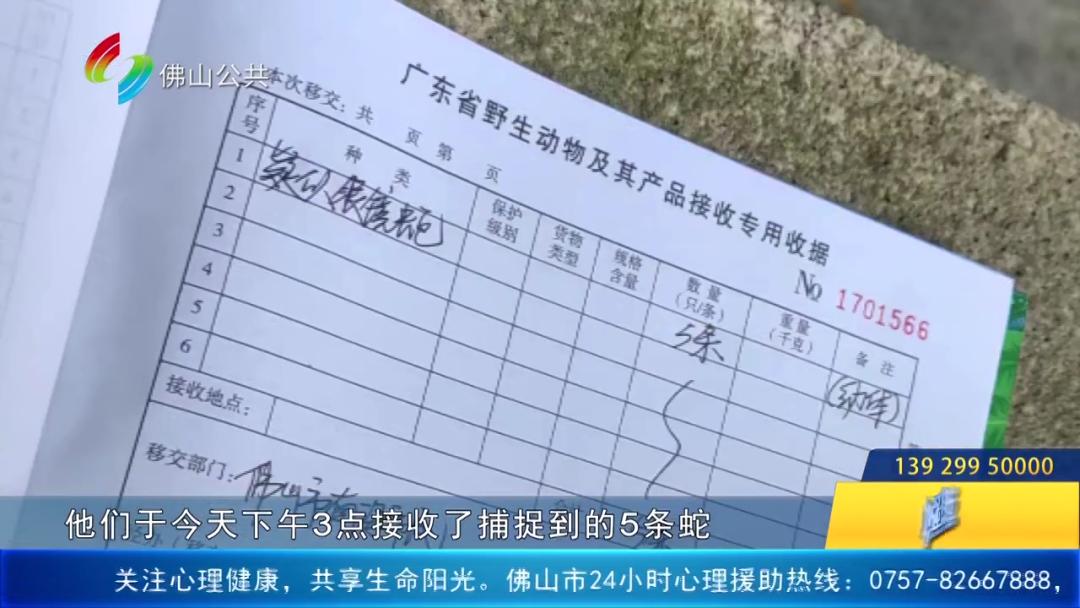 佛山公共
广东省野生动物及其产品接收专用收据
本次移交：共 页 第 页
No 1701566
序号 种类 保护级别 货物类型 规格含量 数量（只/条） 重量（千克） 备注
1 5条
2
3
4
5
6
接收地点：
移交部门：佛山市南
13929950000
他们于今天下午3点接收了捕捉到的5条蛇
关注心理健康，共享生命阳光。佛山市24小时心理援助热线：0757-82667888，